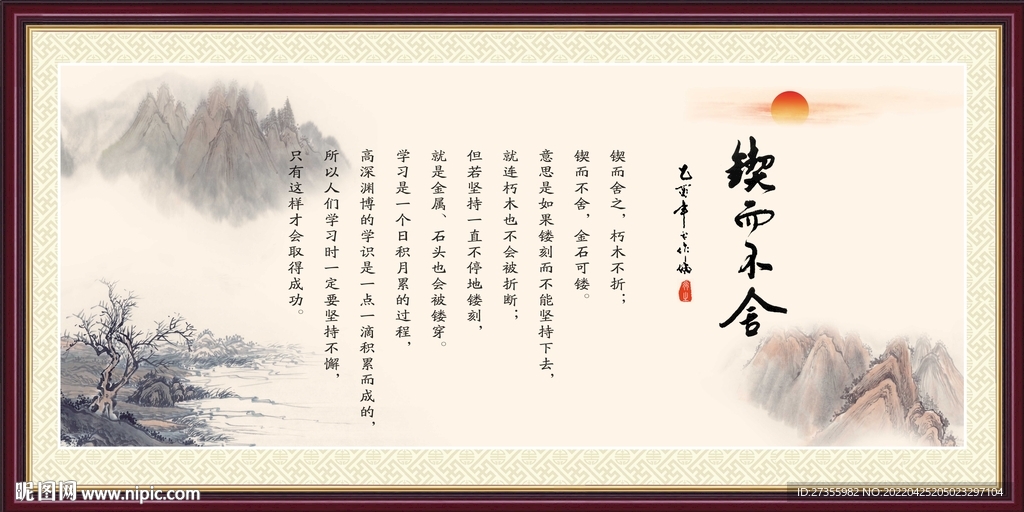 锲而不舍
锲而舍之，朽木不折；
锲而不舍，金石可镂。
意思是如果镂刻而不能坚持下去，
就连朽木也不会被折断；
但若坚持一直不停地镂刻，
就是金属、石头也会被镂穿。
学习是一个日积月累的过程，
高深渊博的学识是一点一滴积累而成的，
所以人们学习时一定要坚持不懈，
只有这样才会取得成功。
昵图网 www.nipic.com
ID:27355982 NO:20220425205023297104